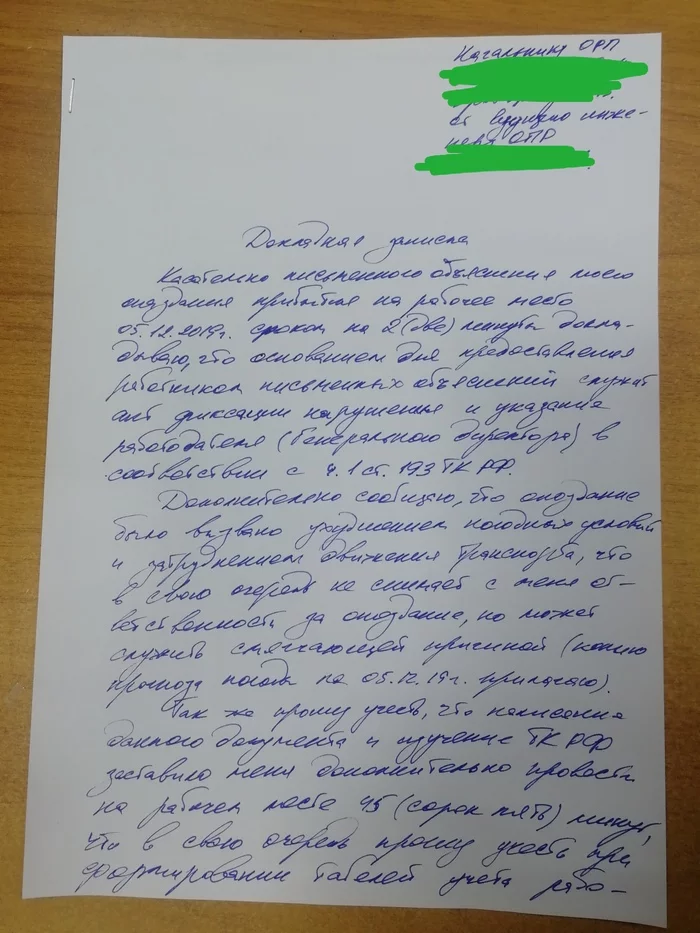 Начальнику ОРП
от ведущего инже-
нера ОПР
Докладная записка
Касательно письменного объяснения моего
опоздания прибытия на рабочее место
05.12.2019г. сроком на 2 (две) минуты докла-
дываю, что основанием для предоставления
работником письменных объяснений служит
акт фиксации нарушения и указание
работодателя (Генерального директора) в
соответствии с ч.1 ст. 193 ТК РФ.
Дополнительно сообщаю, что опоздание
было вызвано ухудшением погодных условий
и затруднением движения транспорта, что
в свою очередь не снимает с меня от-
ветственность за опоздание, но может
служить смягчающей причиной (копию
прогноза погоды на 05.12.19г. прилагаю).
Так же прошу учесть, что написание
данного документа и изучение ТК РФ
заставило меня дополнительно провести
на рабочем месте 45 (сорок пять) минут,
что в свою очередь прошу учесть при
формировании табелей учета рабо-